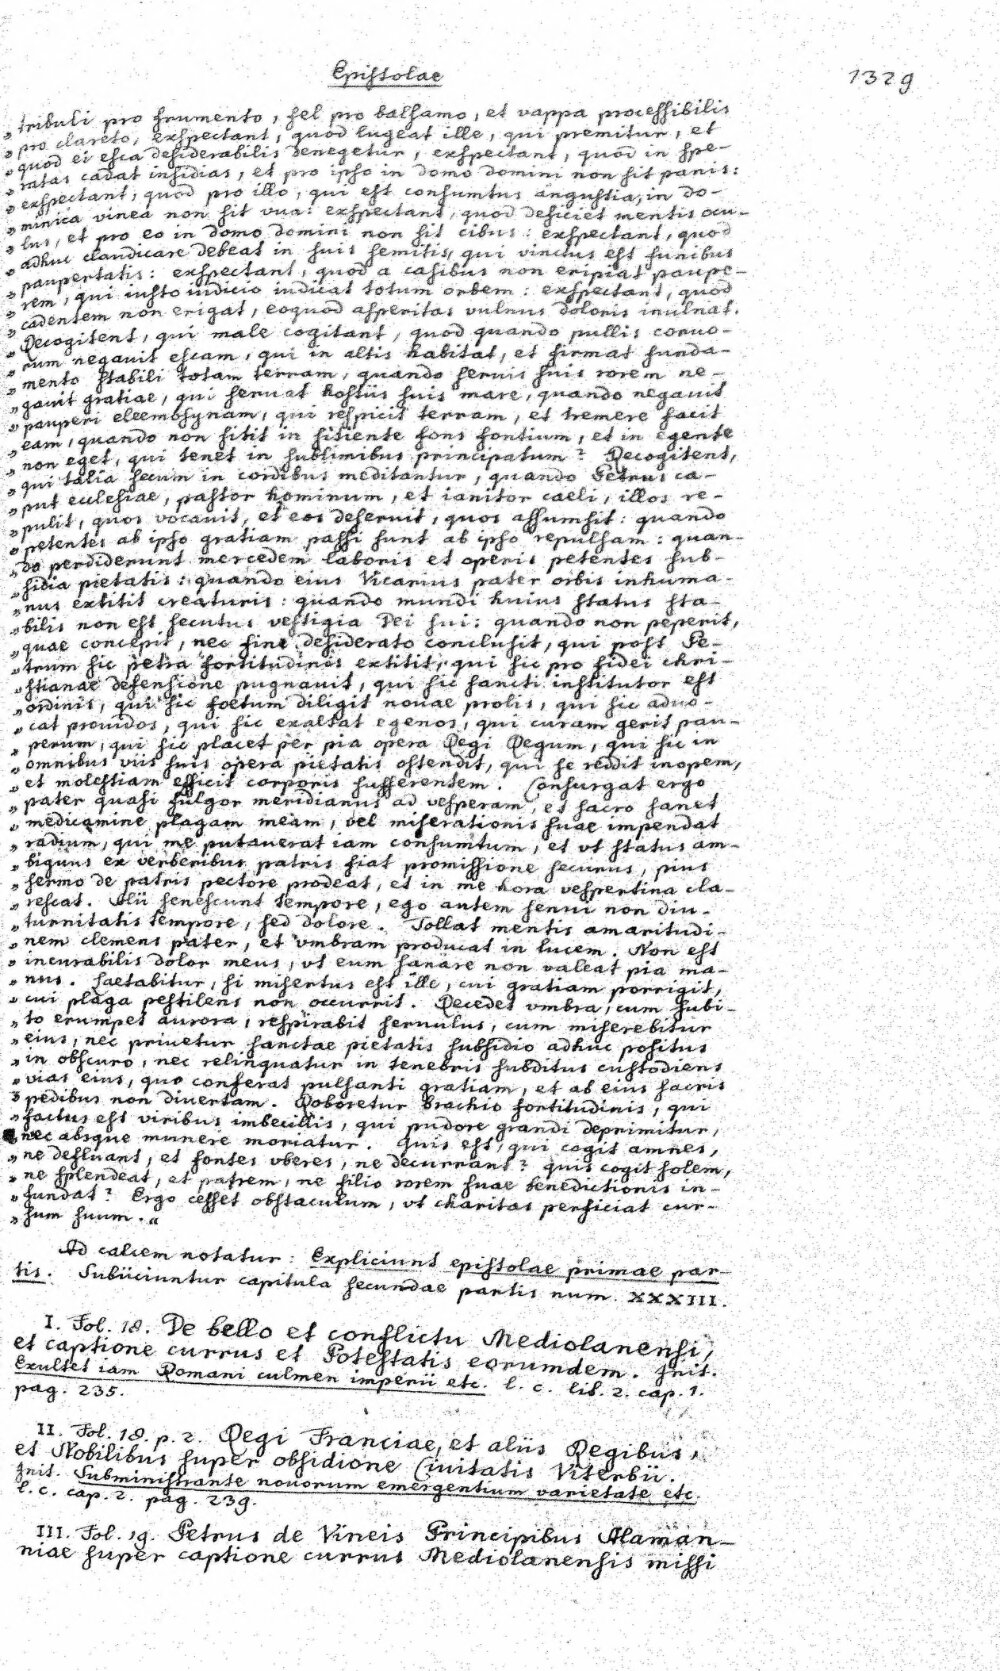 Epistolae
1329
„ tribuli pro frumento, fel pro balsamo, et vappa processibilis
„ pro clareto, exspectant, quod lugeat ille, qui premitur, et
„ quod ei esca desiderabilis denegetur, exspectant, quod in spe-
„ ratas cadat insidias, et pro ipso in domo domini non sit panis:
„ exspectant, quod pro illo, qui est consumtus angustia, in do-
„ minica vinea non sit vua: exspectant, quod deficiet mentis ocu-
„ lus, et pro eo in domo domini non sit cibus: exspectant, quod
„ adhuc claudicare debeat in suis semitis, qui vinctus est funibus
„ paupertatis: exspectant, quod a casibus non eripiat paupe-
„ rem, qui iusto iudicio iudicat totum orbem: exspectant, quod
„ cadentem non erigat, eoquod asperitas vulnus doloris inulnat.
„ Recogitent, qui male cogitant, quod quando pullis coruo-
„ rum negauit escam, qui in altis habitat, et firmat funda-
„ mento stabili totam terram, quando seruis suis rorem ne-
„ gauit gratiae, qui seruat hostiis suis mare, quando negauit
„ pauperi eleemosynam, qui respicit terram, et tremere facit
„ eam, quando non sitit in sitiente fons fontium, et in egente
„ non eget, qui tenet in sublimibus principatum? Recogitent,
„ qui talia secum in cordibus meditantur, quando Petrus ca-
„ put ecclesiae, pastor hominum, et ianitor caeli, illos re-
„ pulit, quos vocauit, et eos deseruit, quos assumsit: quando
„ petentes ab ipso gratiam passi sunt ab ipso repulsam: quan-
„ do perdiderunt mercedem laboris et operis petentes sub-
„ sidia pietatis: quando eius Vicarius pater orbis inhuma-
„ nus extitit creaturis: quando mundi huius status sta-
„ bilis non est secutus vestigia Dei sui: quando non peperit,
„ quae concepit, nec fine desiderato conclusit, qui post Pe-
„ trum sic petra fortitudinis extitit, qui sic pro fidei chri-
„ stianae defensione pugnauit, qui sic sancti institutor est
„ ordinis, qui sic foetum diligit nouae prolis, qui sic aduo-
„ cat prouidos, qui sic exaltat egenos, qui curam gerit pau-
„ perum, qui sic placet per pia opera Regi Regum, qui sic in
„ omnibus viis suis opera pietatis ostendit, qui se reddit inopem,
„ et molestiam efficit corporis sufferentem. Consurgat ergo
„ pater quasi fulgor meridianus ad vesperam, et sacro sanet
„ medicamine plagam meam, vel miserationis suae impendat
„ radium, qui me putauerat iam consumtum, et vt status am-
„ biguus ex verberibus patris fiat promissione securus, pius
„ sermo de patris pectore prodeat, et in me hora vespertina cla-
„ rescat. Alii senescunt tempore, ego autem senui non diu-
„ turnitatis tempore, sed dolore. Tollat mentis amaritudi-
„ nem clemens pater, et vmbram producat in lucem. Non est
„ incurabilis dolor meus, vt eum sanare non valeat pia ma-
„ nus. Laetabitur, si misertus est ille, cui gratiam porrigit,
„ cui plaga pestilens non occurrit. Recedet vmbra, cum subi-
„ to erumpet aurora, respirabit seruulus, cum miserebitur
„ eius, nec priuetur sanctae pietatis subsidio adhuc positus
„ in obscuro, nec relinquatur in tenebris subditus custodiens
„ vias eius, quo conferat pulsanti gratiam, et ab eius sacris
„ pedibus non diuertam. Roboretur brachio fortitudinis, qui
„ factus est viribus imbecillis, qui pudore grandi deprimitur,
„ nec absque munere moriatur. Quis est, qui cogit amnes,
„ ne defluant, et fontes vberes, ne decurrant? quis cogit solem,
„ ne splendeat, et patrem, ne filio rorem suae benedictionis in-
„ fundat? Ergo cesset obstaculum, vt charitas perficiat cur-
„ sum suum."
Ad calcem notatur: Expliciunt epistolae primae par-
tis. Subiiciuntur capitula secundae partis num XXXIII.
I. Fol. 18. De bello et conflictu Mediolanensi,
et captione currus et Potestatis eorumdem. Init.
Exultet iam Romani culmen imperii etc. l. c. lib. 2. cap. 1.
pag. 235.
II. Fol. 18. p. 2. Regi Franciae, et aliis Regibus,
et Nobilibus super obsidione Ciuitatis Viterbii.
Init. Subministrante nouorum emergentium varietate etc.
l. c. cap. 2. pag. 239.
III. Fol. 19. Petrus de Vineis Principibus Alaman-
niae super captione currus Mediolanensis missi